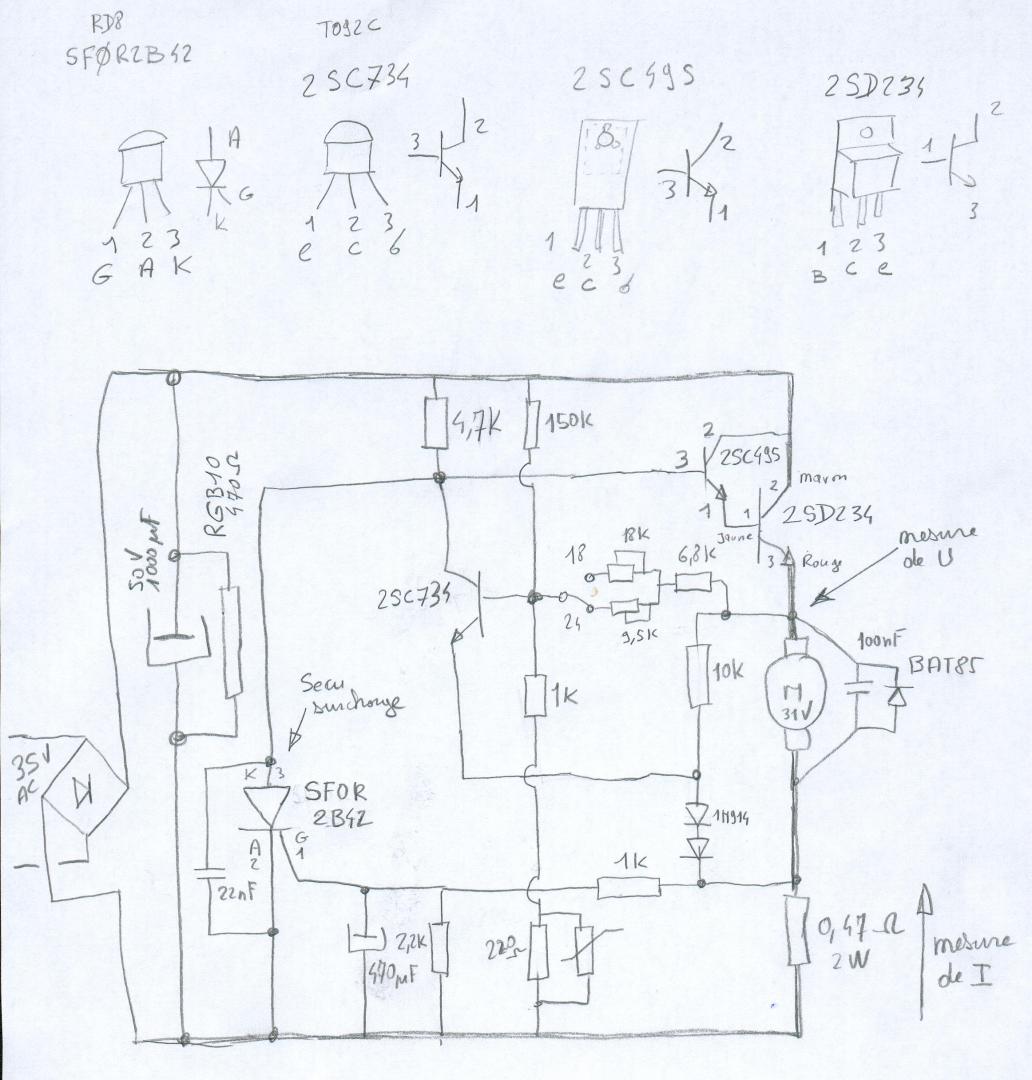 RD8
SFØR2B42
TO92C
2SC734
2SC495
2SD234
A
G
K
3
2
1
3
2
1
1
2
3
1 2 3
G A K
1 2 3
e c b
1 2 3
e c b
1 2 3
B c e
4,7K
150K
2
3
2SC495
1
2
maron
1
2SD234
Jaune
3
Rouge
mesure
de U
RGB10
470Ω
50V
1000µF
18
18K
6,8K
2SC734
24
9,5K
100nF
BAT85
10K
M
31V
1K
Secu
surcharge
35V
AC
K
3
SFOR
2B42
A
2
G
1
22nF
1N914
1K
2,2K
470µF
220Ω
0,47Ω
2W
mesure
de I